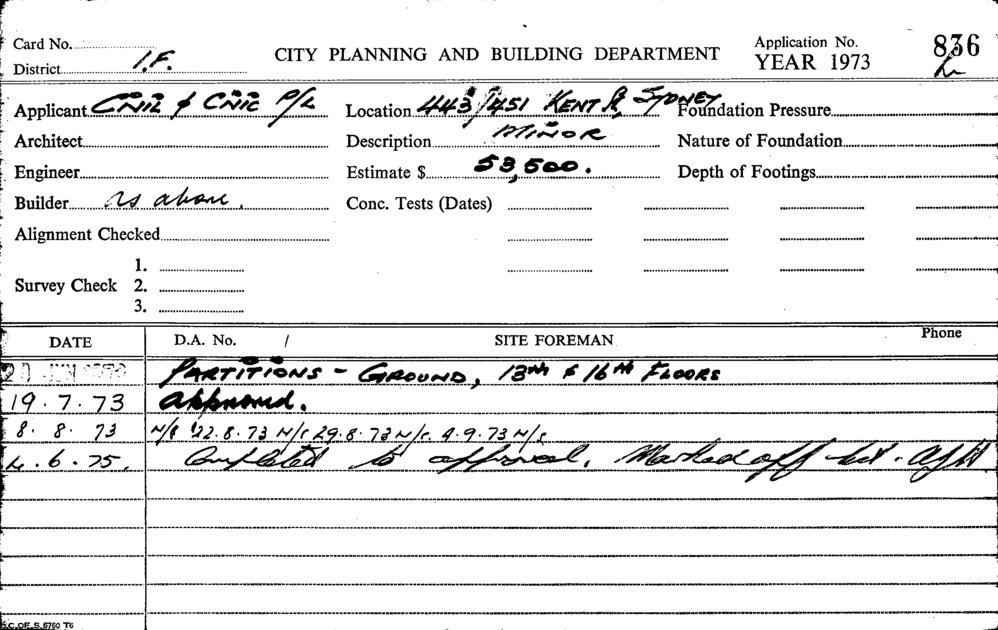 Card No.
District I.F.
CITY PLANNING AND BUILDING DEPARTMENT
Application No. 836
YEAR 1973
Applicant CIVIL & CIVIC P/L
Location 443/451 KENT St, SYDNEY
Foundation Pressure
Architect
Description MINOR
Nature of Foundation
Engineer
Estimate $ 53,500.
Depth of Footings
Builder as above.
Conc. Tests (Dates)
Alignment Checked
Survey Check
1.
2.
3.
DATE D.A. No. / SITE FOREMAN Phone
20 JUN 1973 PARTITIONS - GROUND, 13th & 16th FLOORS
19.7.73 Approved.
8.8.73 N/S 22.8.73 N/S 29.8.73 N/S. 4.9.73 N/S
4.6.75. Completed to approval. Marked off list.
S.C.OF.S. 5760 T6